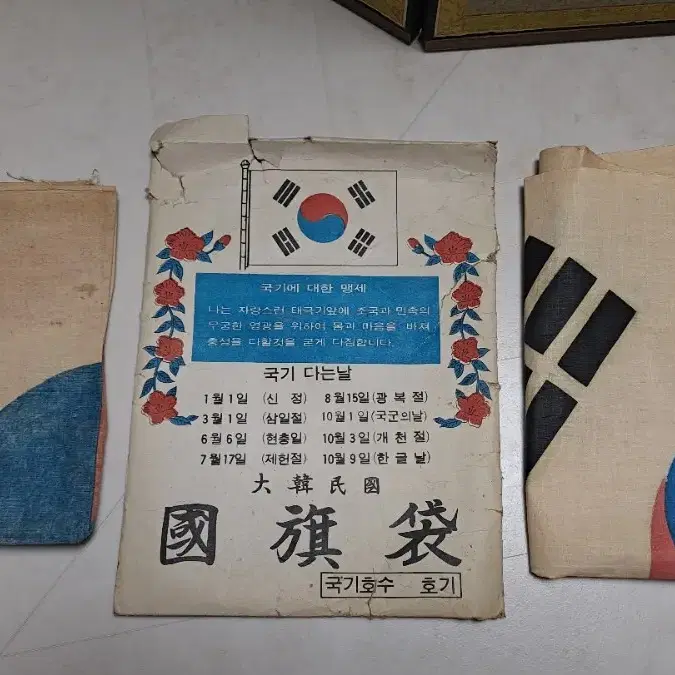 국기에 대한 맹세
나는 자랑스런 태극기앞에 조국과 민족의
무궁한 영광을 위하여 몸과 마음을 바쳐
충성을 다할것을 굳게 다짐합니다.
국기 다는날
1월 1일 (신 정) 8월 15일 (광 복 절)
3월 1일 (삼일절) 10월 1일 (국군의날)
6월 6일 (현충일) 10월 3일 (개 천 절)
7월 17일 (제헌절) 10월 9일 (한 글 날)
大韓民國
國旗袋
국기호수 호기